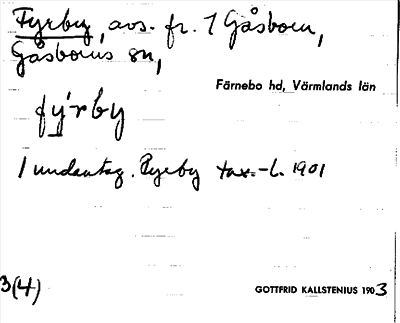 Fyrby, avs. fr. 1 Gåsborn,
Gåsborns sn,
Färnebo hd, Värmlands län
fýrby
1 undantag. Pyrby tax.-l. 1901
3(4)
GOTTFRID KALLSTENIUS 1903